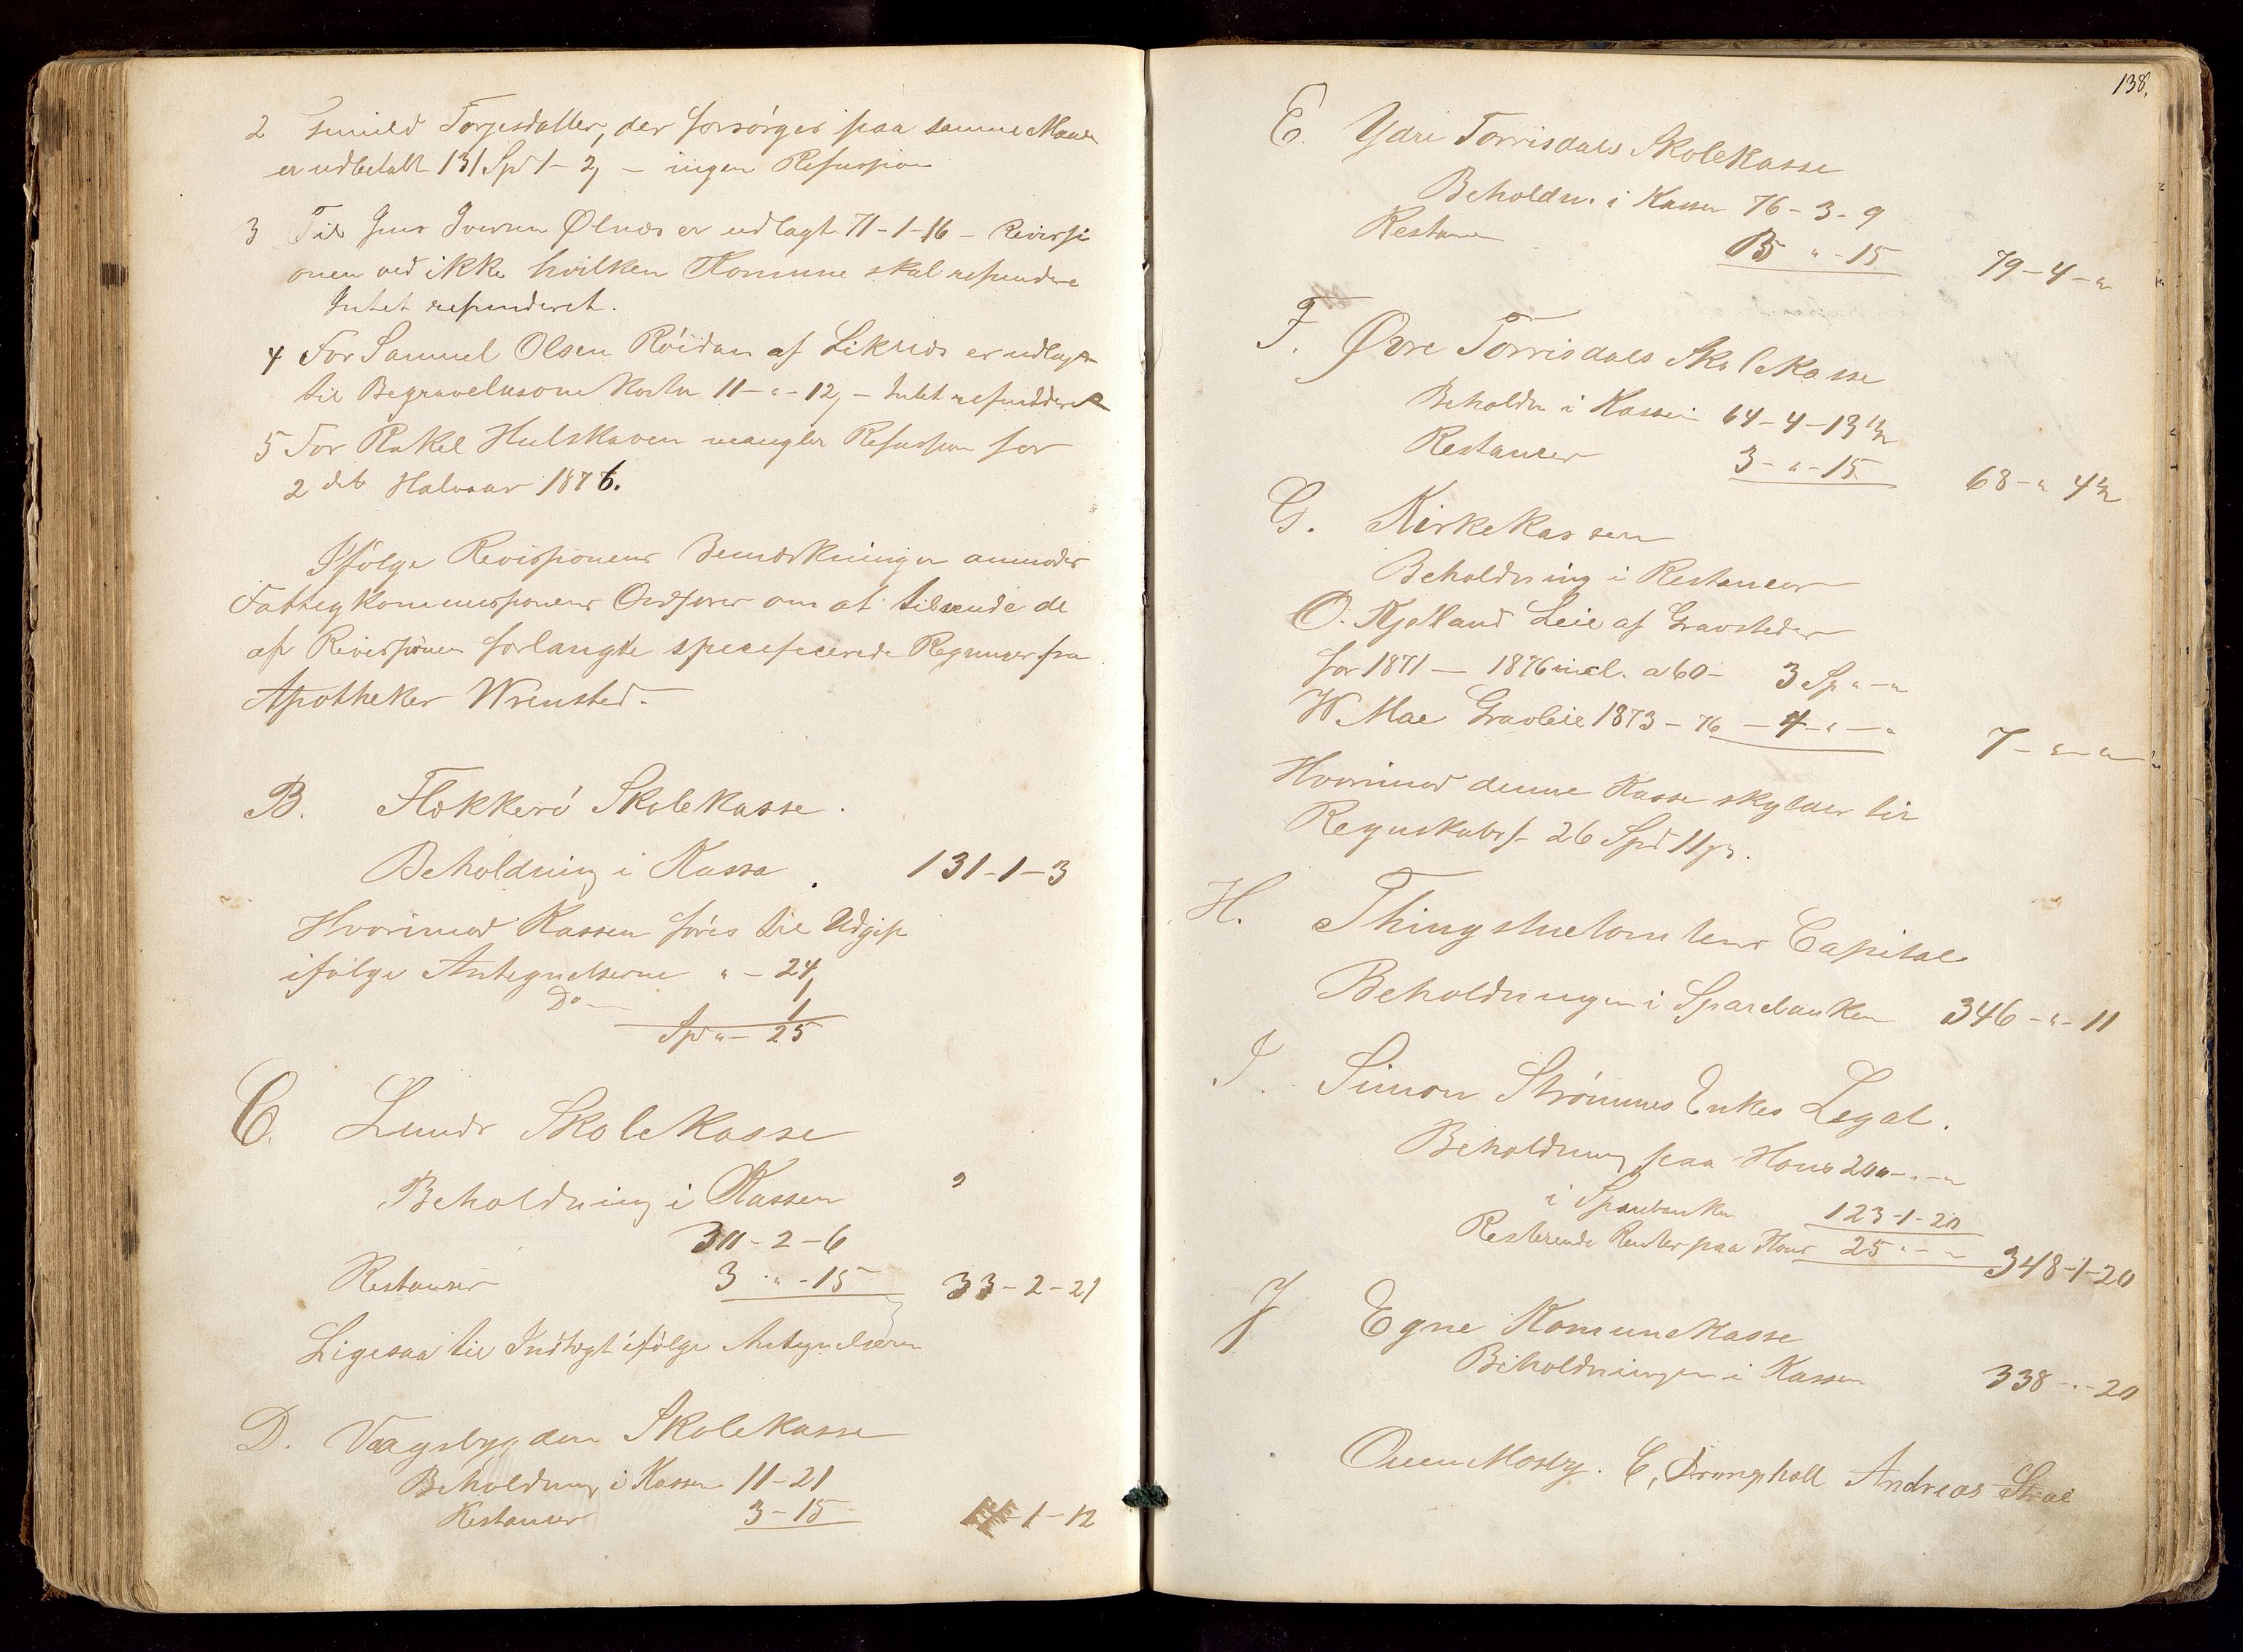 2 Torjesdatter, der forsørges paa samme Maade
er udbetalt 131 Spd 1-2, - ingen Refusion
3 Til Jens Iversen Ølnes er udlagt 71-1-16 - Revisi
onen ved ikke hvilken Komune skal refundere
Intet refunderet.
4 For Samuel Olsen Røidan af Liknes er udlagt
til Begravelsesomkostn 11-"-12, - Intet refundderet
5 For Rakel Hulskaven mangler Refusion for
2 det Halvaar 1876.
Ifølge Revisionens Bemærkninger anmodes
Fattigkommissionens Ordfører om at tilsende de
af Revisionen forlangte specificerede Regninger fra
Apotheker Wrensted.
B. Flekkerø Skolekasse.
Beholdning i Kassa . 131-1-3
Hvorimod Kassen føres til Udgift
ifølge Antegnelserne " - 24,
Do — 1
Spd " - 25
C. Lunds Skolekasse
Beholdning i Kassen
30-2-6
Restancer 3 - " - 15 33-2-21
Ligesaa til Indtægt ifølge Antegnelserne
D. Vaagsbygden Skolekasse
Beholdning i Kassen 11-21
Restancer 3-15 1-12
138.
E. Ydre Torrisdals Skolekasse
Beholdn. i Kassen 76-3-9
Restancer " - 15 79-4-"
F. Øvre Torrisdals Skolekasse
Beholdn i Kassen 64-4-13 ½
Restancer 3-"-15 68-" 4½
G. Kirkekassen
Beholdning i Restancer
O. Kjelland Leie af Gravsteder
for 1871 — 1876 incl. a 60 - 3 Sp " - "
W. Moe Gravleie 1873-76 - 4 - " - " 7 - " - "
Hvorimod denne Kasse skylder til
Regnskabsf 26 Spd 11 ß.
H. Thingstuetomtens Capital
Beholdningen i Sparebanken 346-"-11
I. Simon Strømmes Enkes Legat.
Beholdning paa Haand 200-"-"
i Sparebanken 123-1-20
Resterende Renter paa Haand 25 " - " 348-1-20
J Egne Komunekasse
Beholdningen i Kassen 338-"-20
Owen Mosby. C, Andreas